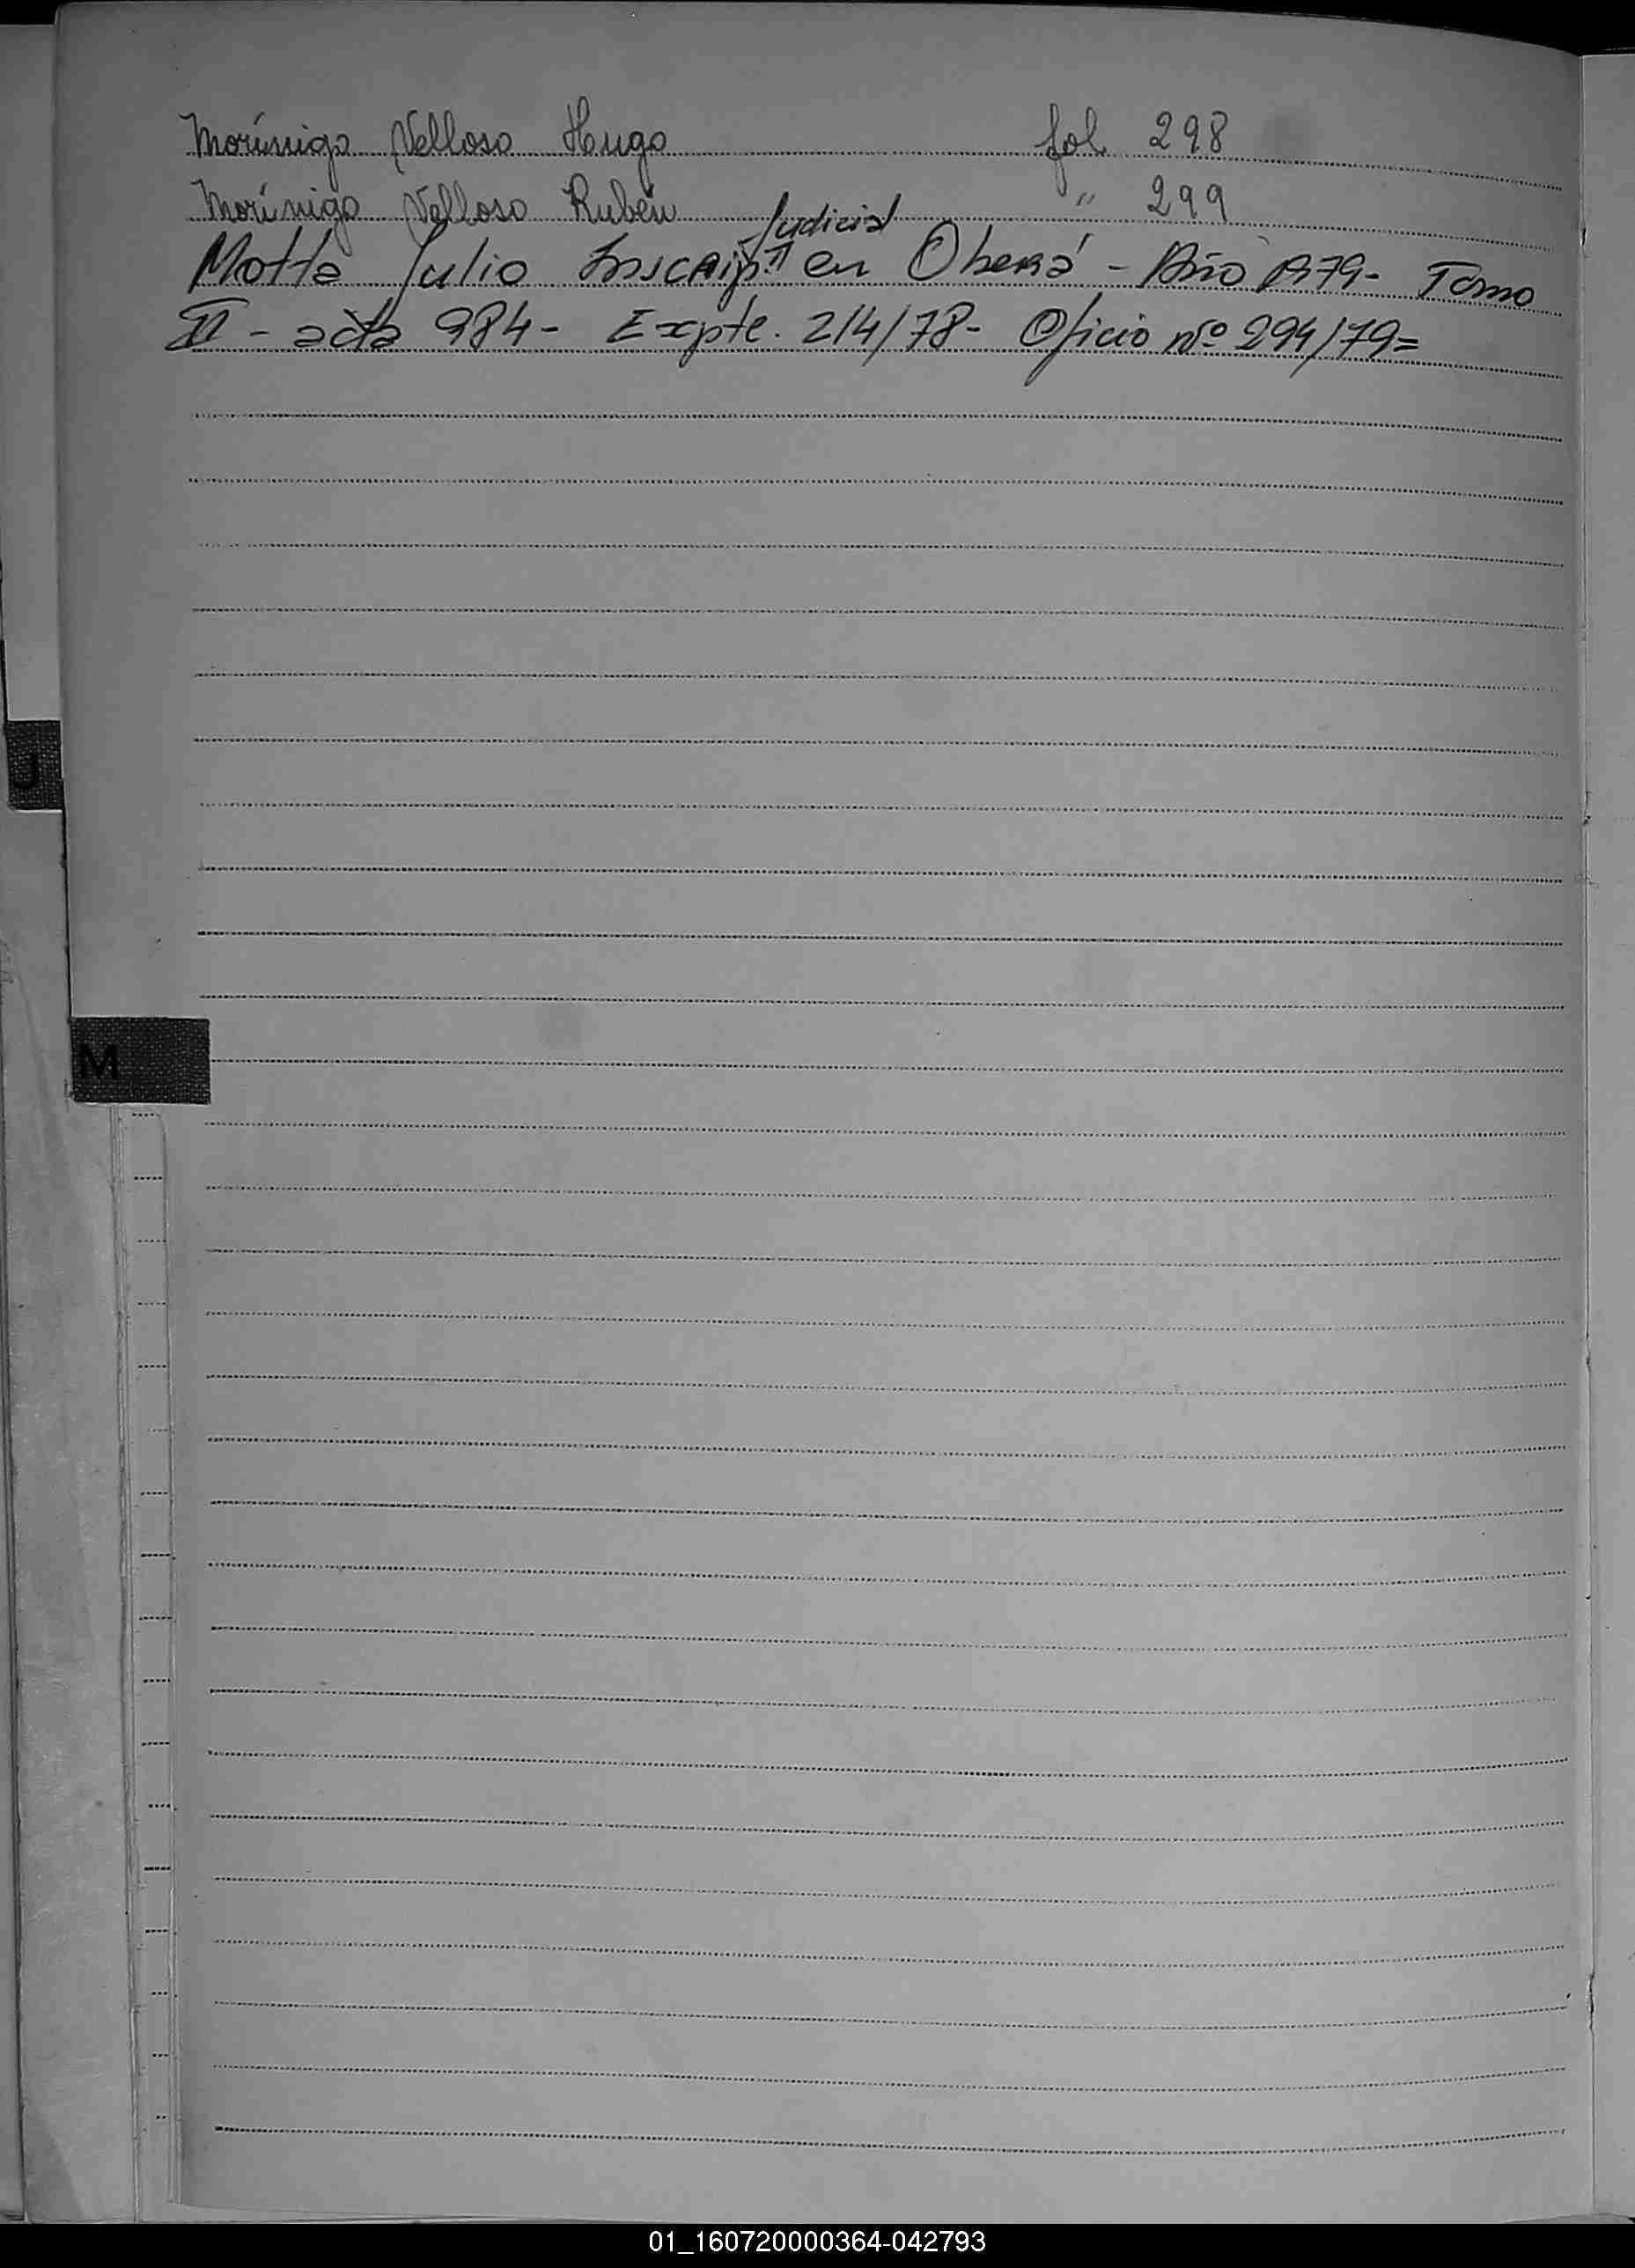 Morínigo Velloso Hugo fol 298
Morínigo Velloso Rubén " 299
Judicial
Motta Julio Inscripn en Oberá - Año 1979 - Tomo
II - acta 984 - Expte. 214/78 - Oficio nº 294/79=
J
M
01_160720000364-042793